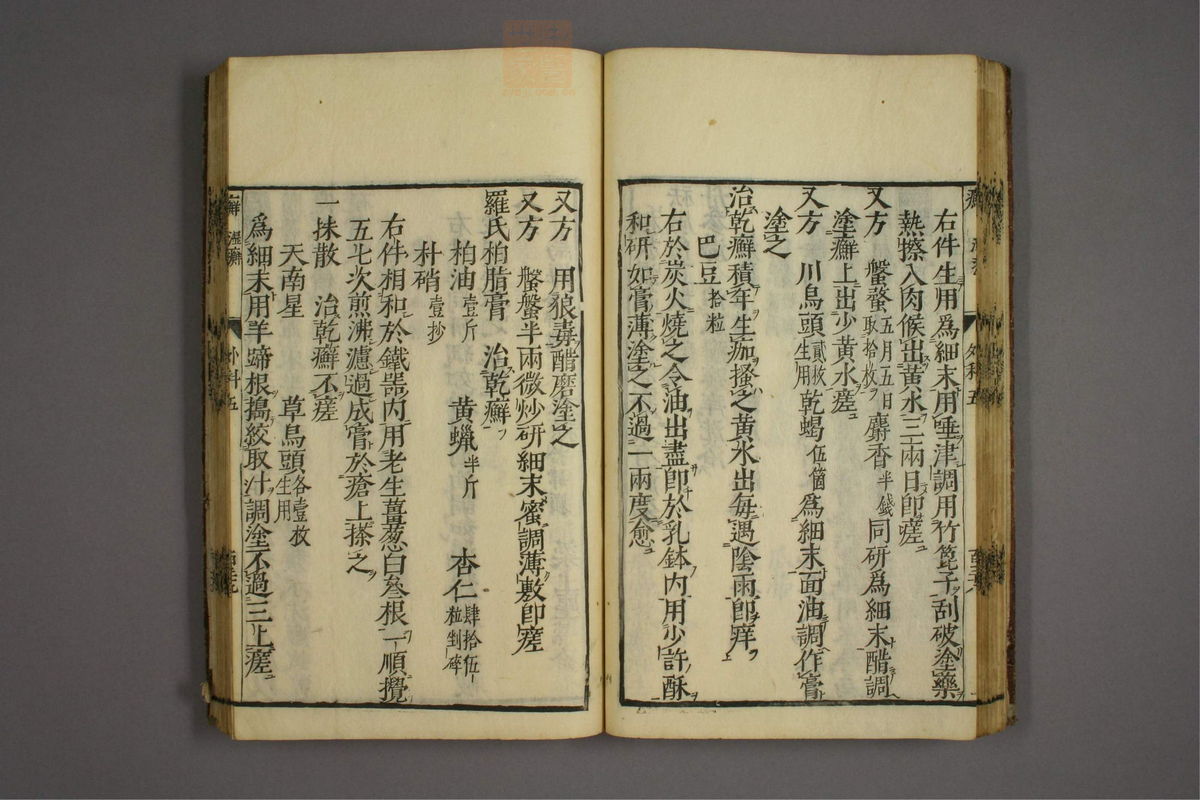 右件生用爲細末用唾津調用竹篦子刮破塗藥
熱擦入肉候出黃水三兩日卽瘥
又方 盤蝥五月五日取拾枚 麝香半錢 同研爲細末醋調
塗癬上出少黃水瘥
又方 川烏頭貳枚生用 乾蝎伍箇 爲細末面油調作膏
塗之
治乾癬積年生痂搔之黃水出每遇陰雨卽痒
巴豆拾粒
右於炭火燒之令油出盡卽於乳鉢內用少許酥
和研如膏薄塗之不過一兩度愈
又方 用狼毒醋磨塗之
又方 盤蝥半兩微炒研細末蜜調薄敷卽瘥
羅氏柏脂膏 治乾癬
柏油壹斤 黃蠟半斤 杏仁肆拾伍粒剉碎
朴硝壹抄
右件相和於鐵器內用老生薑葱白叄根一順攪
五七次煎沸濾過成膏於瘡上搽之
一抹散 治乾癬不瘥
天南星 草烏頭各壹枚生用
爲細末用羊蹄根搗絞取汁調塗不過三上瘥
癬 濕癬 外科五